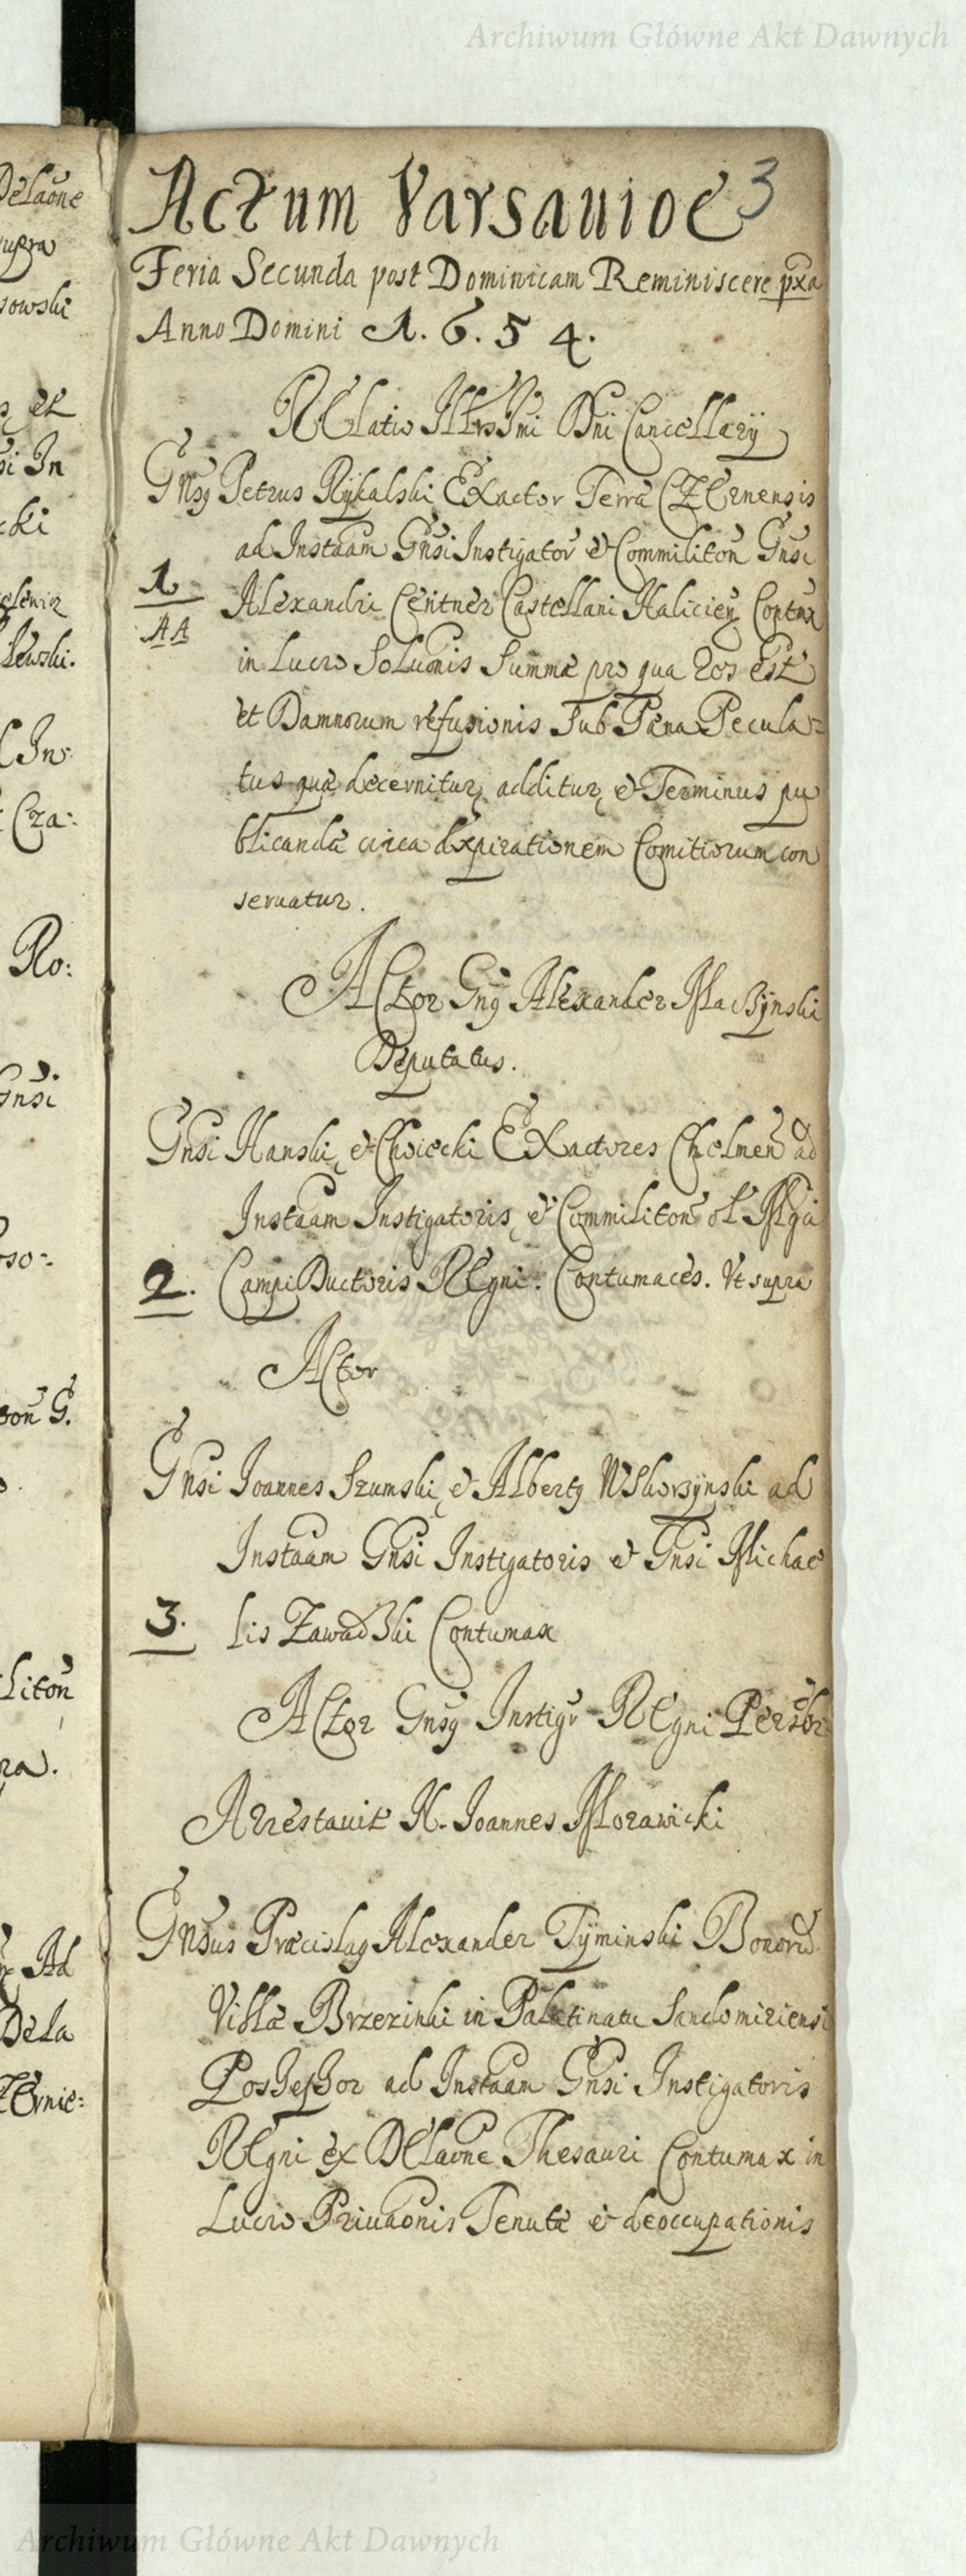 Archiwum Główne Akt Dawnych
3
Actum Varsauioe
Feria Secunda post Dominicam Reminiscere pxa
Anno Domini 1. 6. 5 4.
Relatio Dni Cancellarij
Gnsg Petrus Rÿkalski Exactor Terrae CZernensis
ad Instaam Gnsi Instigator & Commiliton Gnsi
1
AA
Alexandri Centner Castellani Halicien Contux
in Lucro Soluonis Summae pro qua Ros est
et Damnorum refusionis sub Paena Pecula=
tus quae decernitur, additur, & Terminus pu
blicandae circa expirationem Comitiorum con
seruatur.
Actor Gng Alexander Maszÿnski
Deputatus.
Gnsi Hanski, & Choiecki Exactores Chelmen ad
Instaam Instigatoris, & Commiliton ol Mgi
2. Campi Ductoris Regni. Contumaces. Vt supra
Actor
Gnsi Joannes Szumski, & Albertg Wskorzÿnski ad
Instaam Gnsi Instigatoris & Gnsi Michae
3. lis Zawadzki Contumax
Actor Gnsg Instigr Regni Persbr
Arrestauit N. Joannes Morawicki
Gnsus Praecislag Alexander Tÿminski Bonoru
Villae Brzezinki in Palatinatu Sandomiriensi
Possessor ad Instaam Gnsi Instigatoris
Regni ex Delaone Thesauri Contumax in
Lucro Priuaonis Tenutae & deoccupationis
Delaone
supra
sowski
et
si In
cki
lewski.
In
Cza:
Ro:
Gnsi
oso:
son G.
liton
ra.
Ad
Dela
Archiwum Główne Akt Dawnych